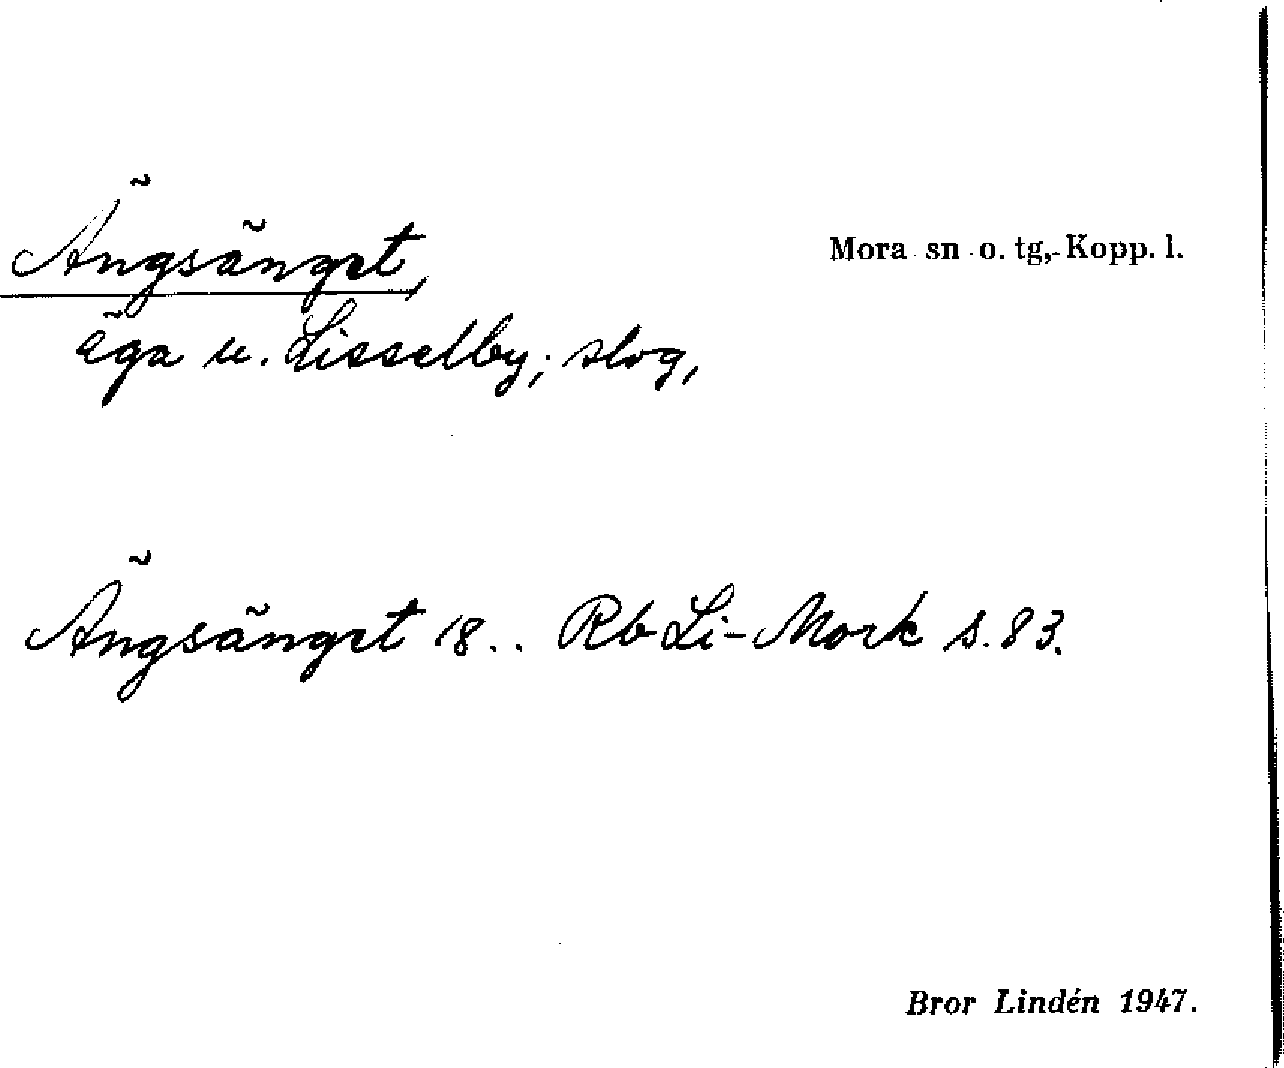 Ängsänget,
Mora sn o. tg, Kopp. l.
äga u. Lisselby; slog,
Ängsänget 18.. Rb Li-Mork s. 83.
Bror Lindén 1947.